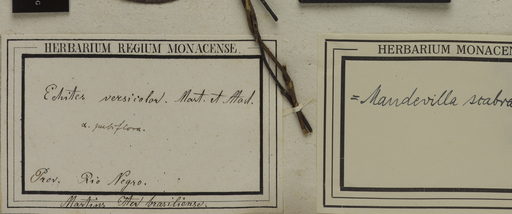 HERBARIUM REGIUM MONACENSE.
Echites versicolor. Mart. et Stad.
α.
Prov. Rio Negro.
Martius Iter brasiliense.
HERBARIUM MONACEN
= Mandevilla scabra